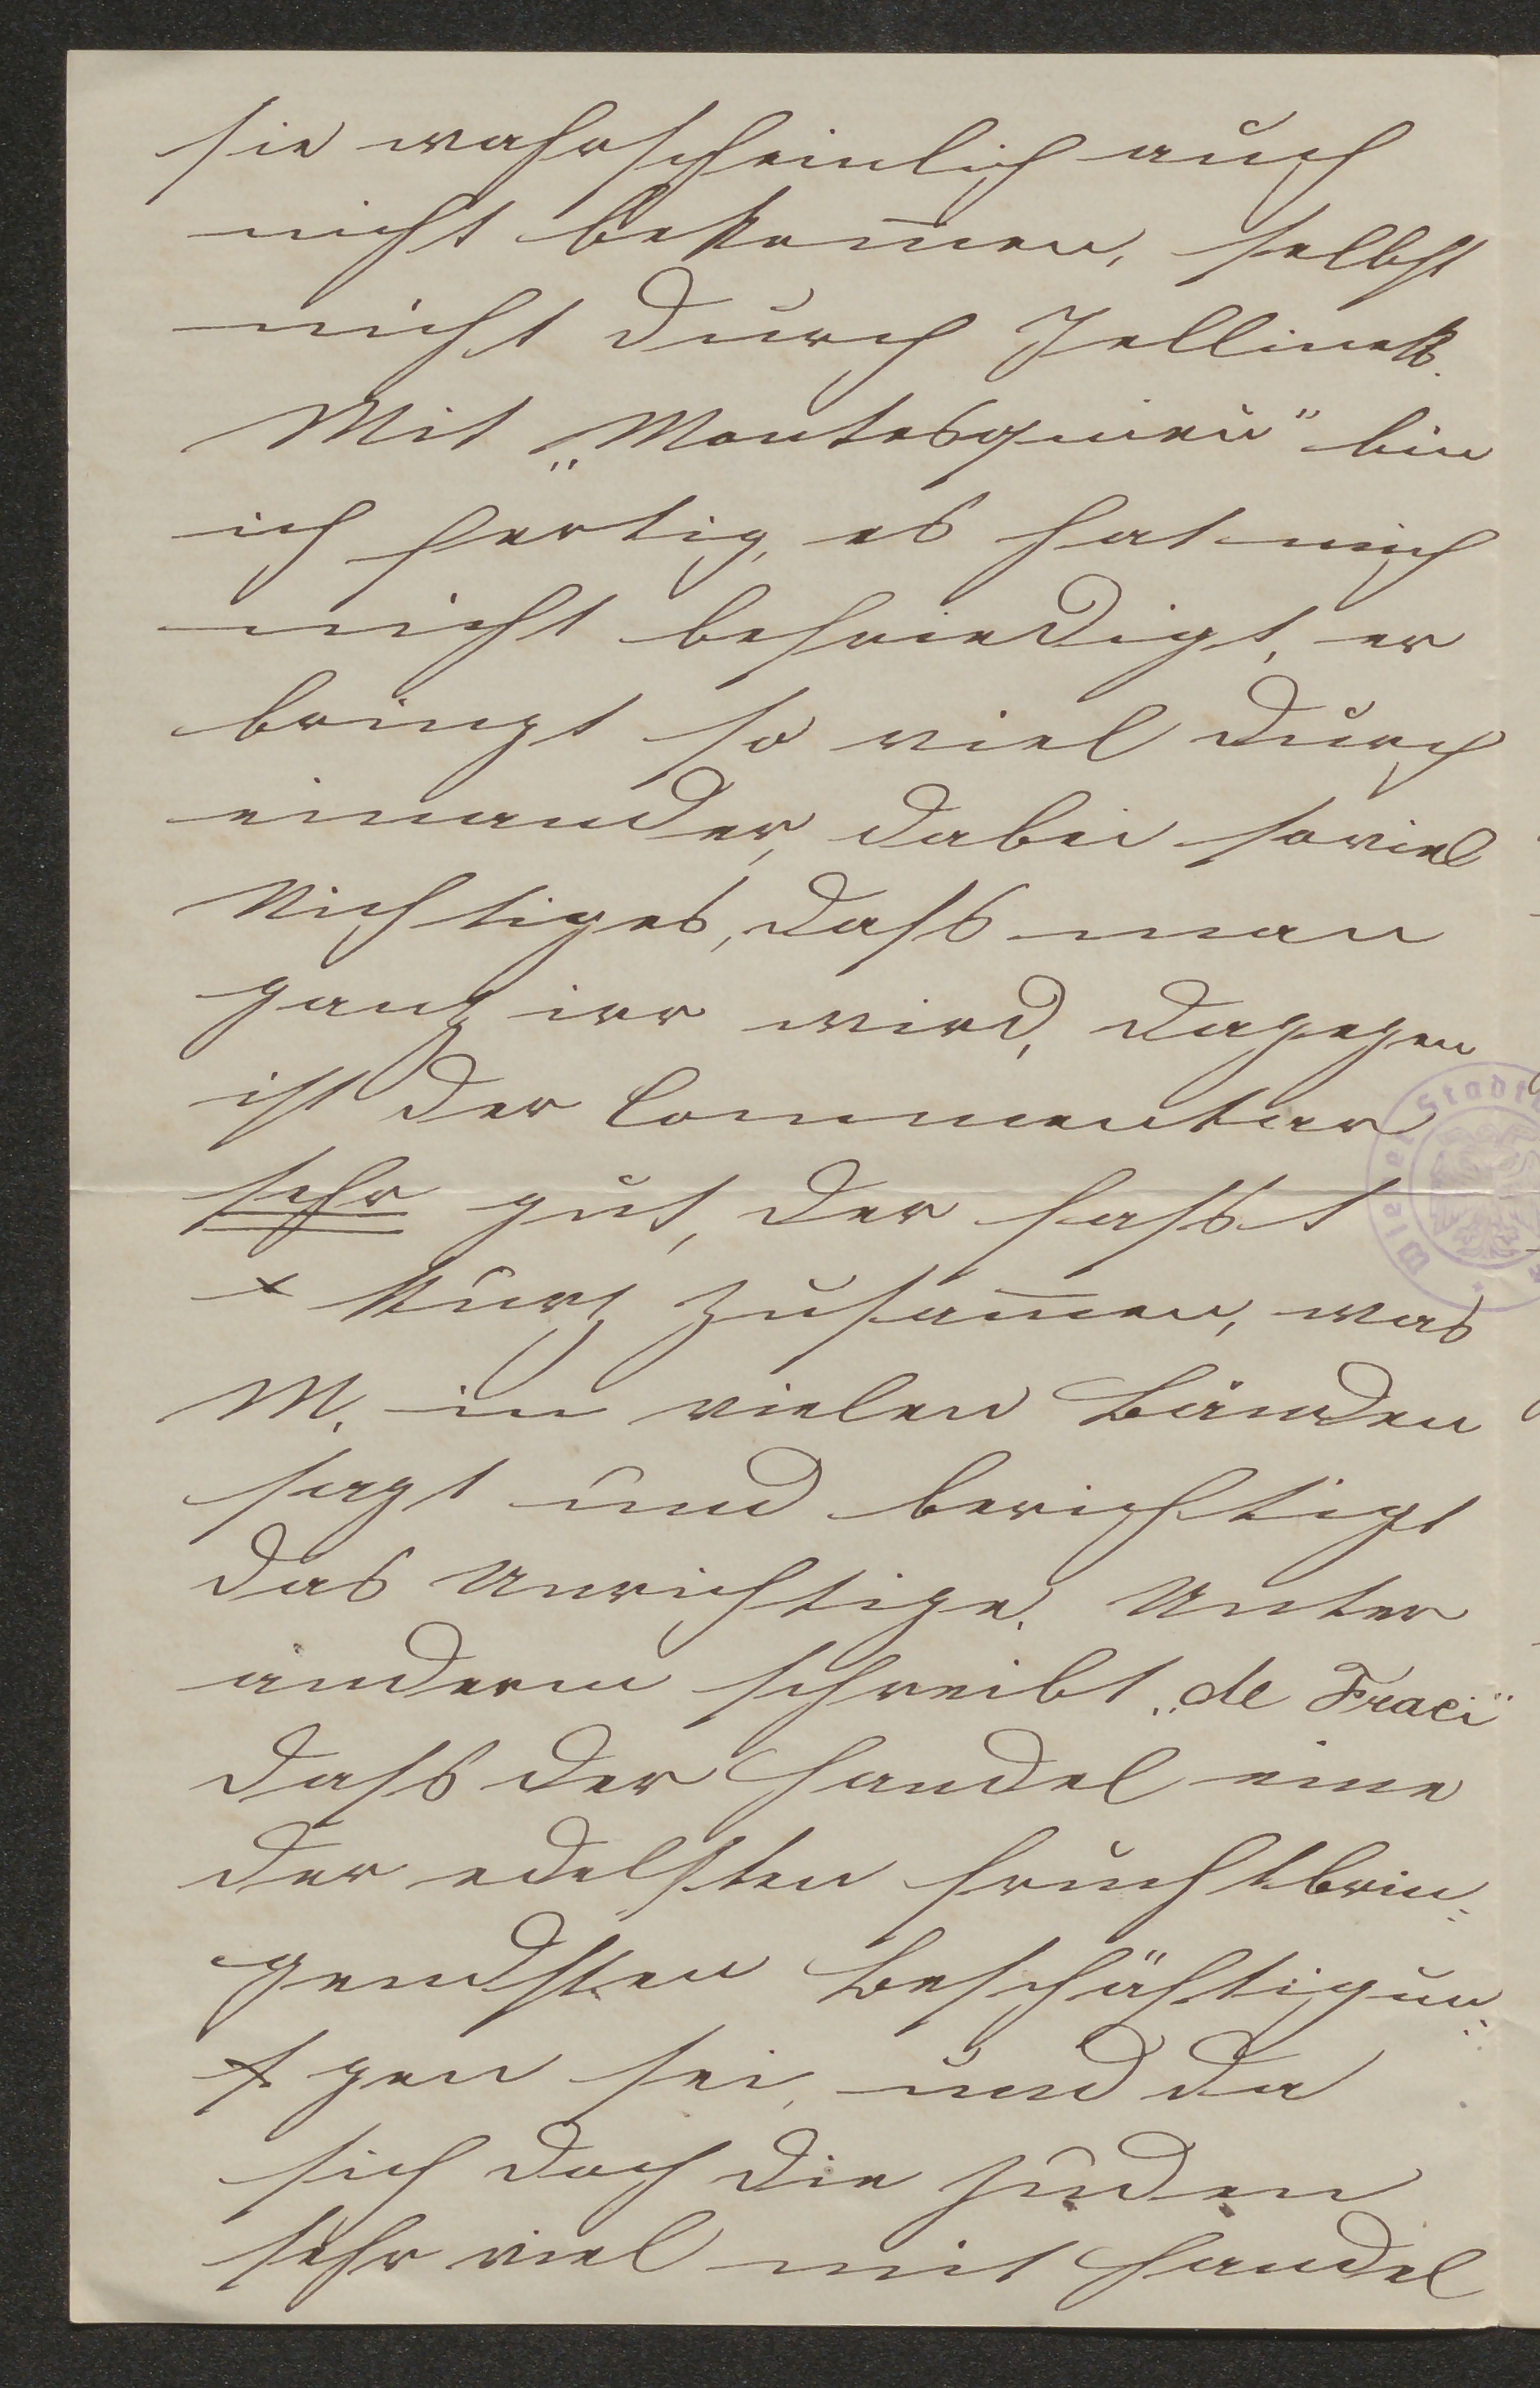 sie wahrscheinlich auch
nicht bekom̅en, selbst
nicht durch Jellinek.
Mit „Montesquieu" bin
ich fertig, es hat mich
nicht befriedigt, er
bringt so viel durch
einander, dabei soviel
Nichtiges, dass man
ganz irr wird, dagegen
ist der Commentar
sehr gut, der fasst
+ kurz zusam̅en, was
M. in vielen Bänden
sagt und berichtigt
das Unrichtige. Unter
anderm schreibt „de Traci"
dass der Handel eine
der edelsten fruchtbrin-
gendsten Beschäftigun-
+ gen sei, und da
sich doch die Juden
sehr viel mit Handel
Wiener Stadt